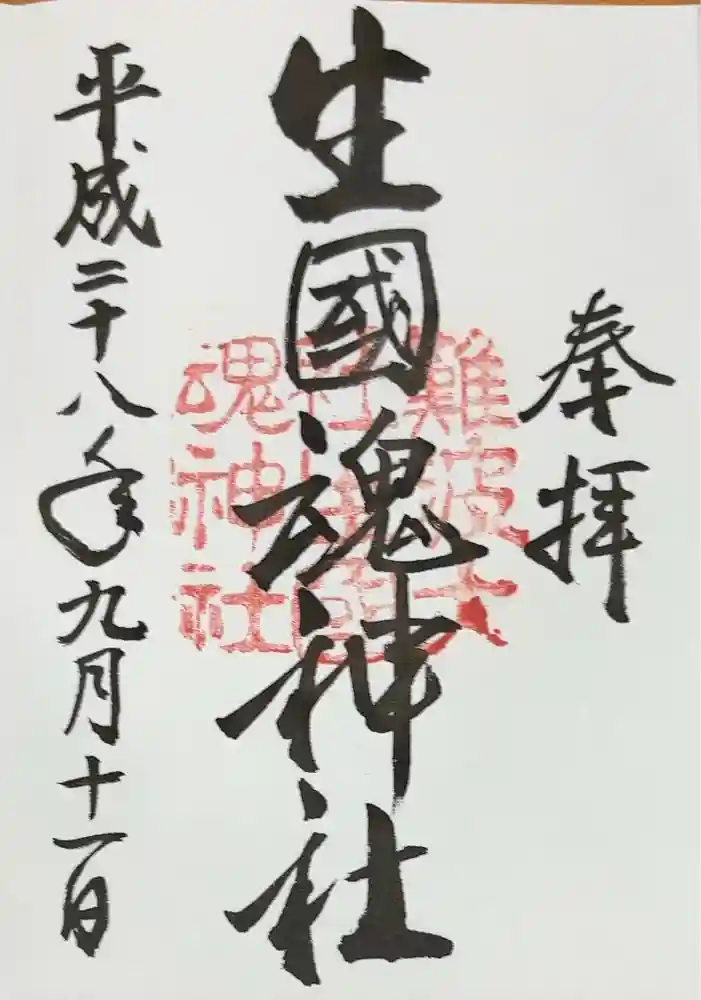 奉拝
生國魂神社
平成二十八年九月十一日
難波大
魂神社